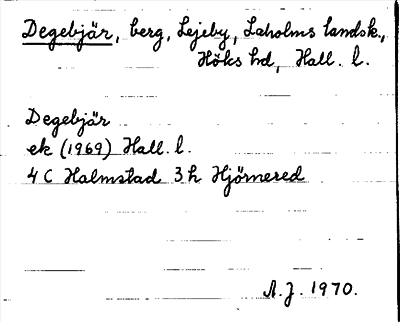 Degebjär, berg, Lejeby, Laholms landsk.,
Höks hd, Hall. l.
Degebjär
ek (1969) Hall. l.
4 C Halmstad 3 h Hjörnered
A.J. 1970.